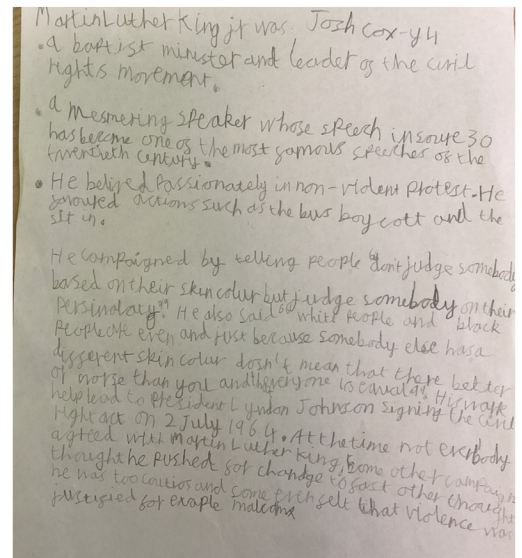 Martin Luther King jr was Josh cox-y4
• a baptist minister and leader of the civil
rights movement.
• a mesmering speaker whose speech in 30
has become one of the most famous speeches of the
twentieth century.
• He belived Passionately in non-violent Protest. He
favoured actions such as the bus boycott and the
sit in.
He campaigned by telling people "don't judge somebody
based on their skin colur but judge somebody on their
Persinolaty" He also said "white People and black
People are even and just because somebody else has a
different skin colour dosn't mean that there better
or worse than you and everyone is equal" His work
help lead to President Lyndon Johnson signing the Civil
right act on 2 July 1964. At the time not everbody
agreed with Martin Luther King, some other
thought he pushed for chandge to fast other thought
he was too cautios and some felt that violence was
justified for exaple malcomx